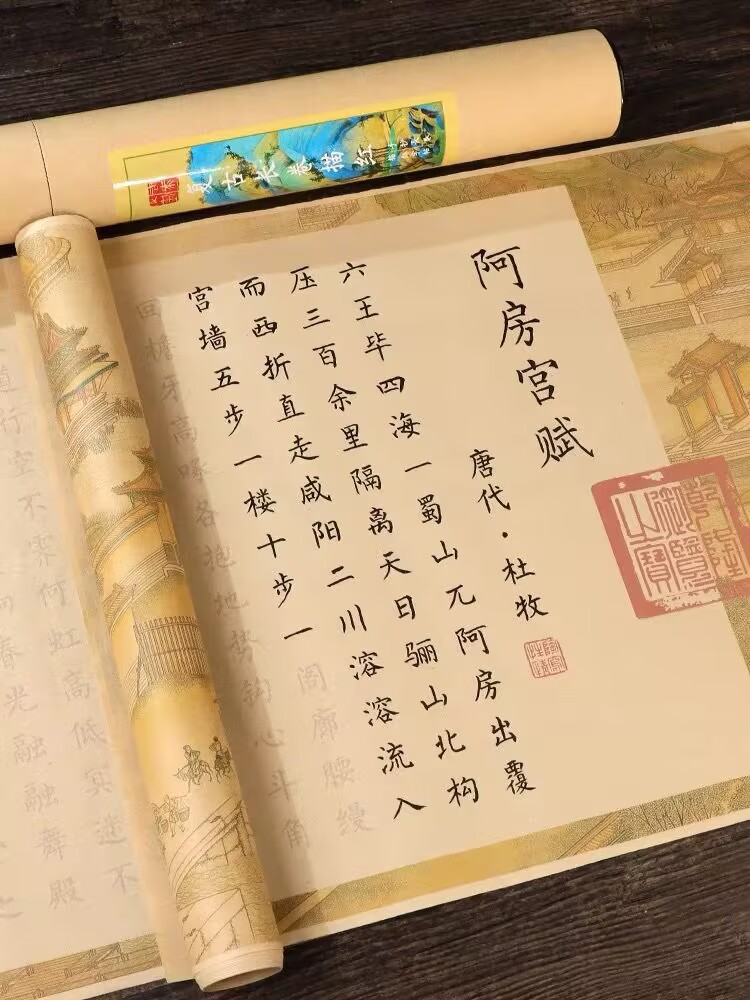 复古长卷描红
阿房宫赋
唐代·杜牧
六王毕四海一蜀山兀阿房出覆
压三百余里隔离天日骊山北构
而西折直走咸阳二川溶溶流入
宫墙五步一楼十步一阁廊腰缦
回檐牙高啄各抱地势钩心斗角
道行空不霁何虹高低冥迷不
春光融融舞殿
之
乾隆御览之寶